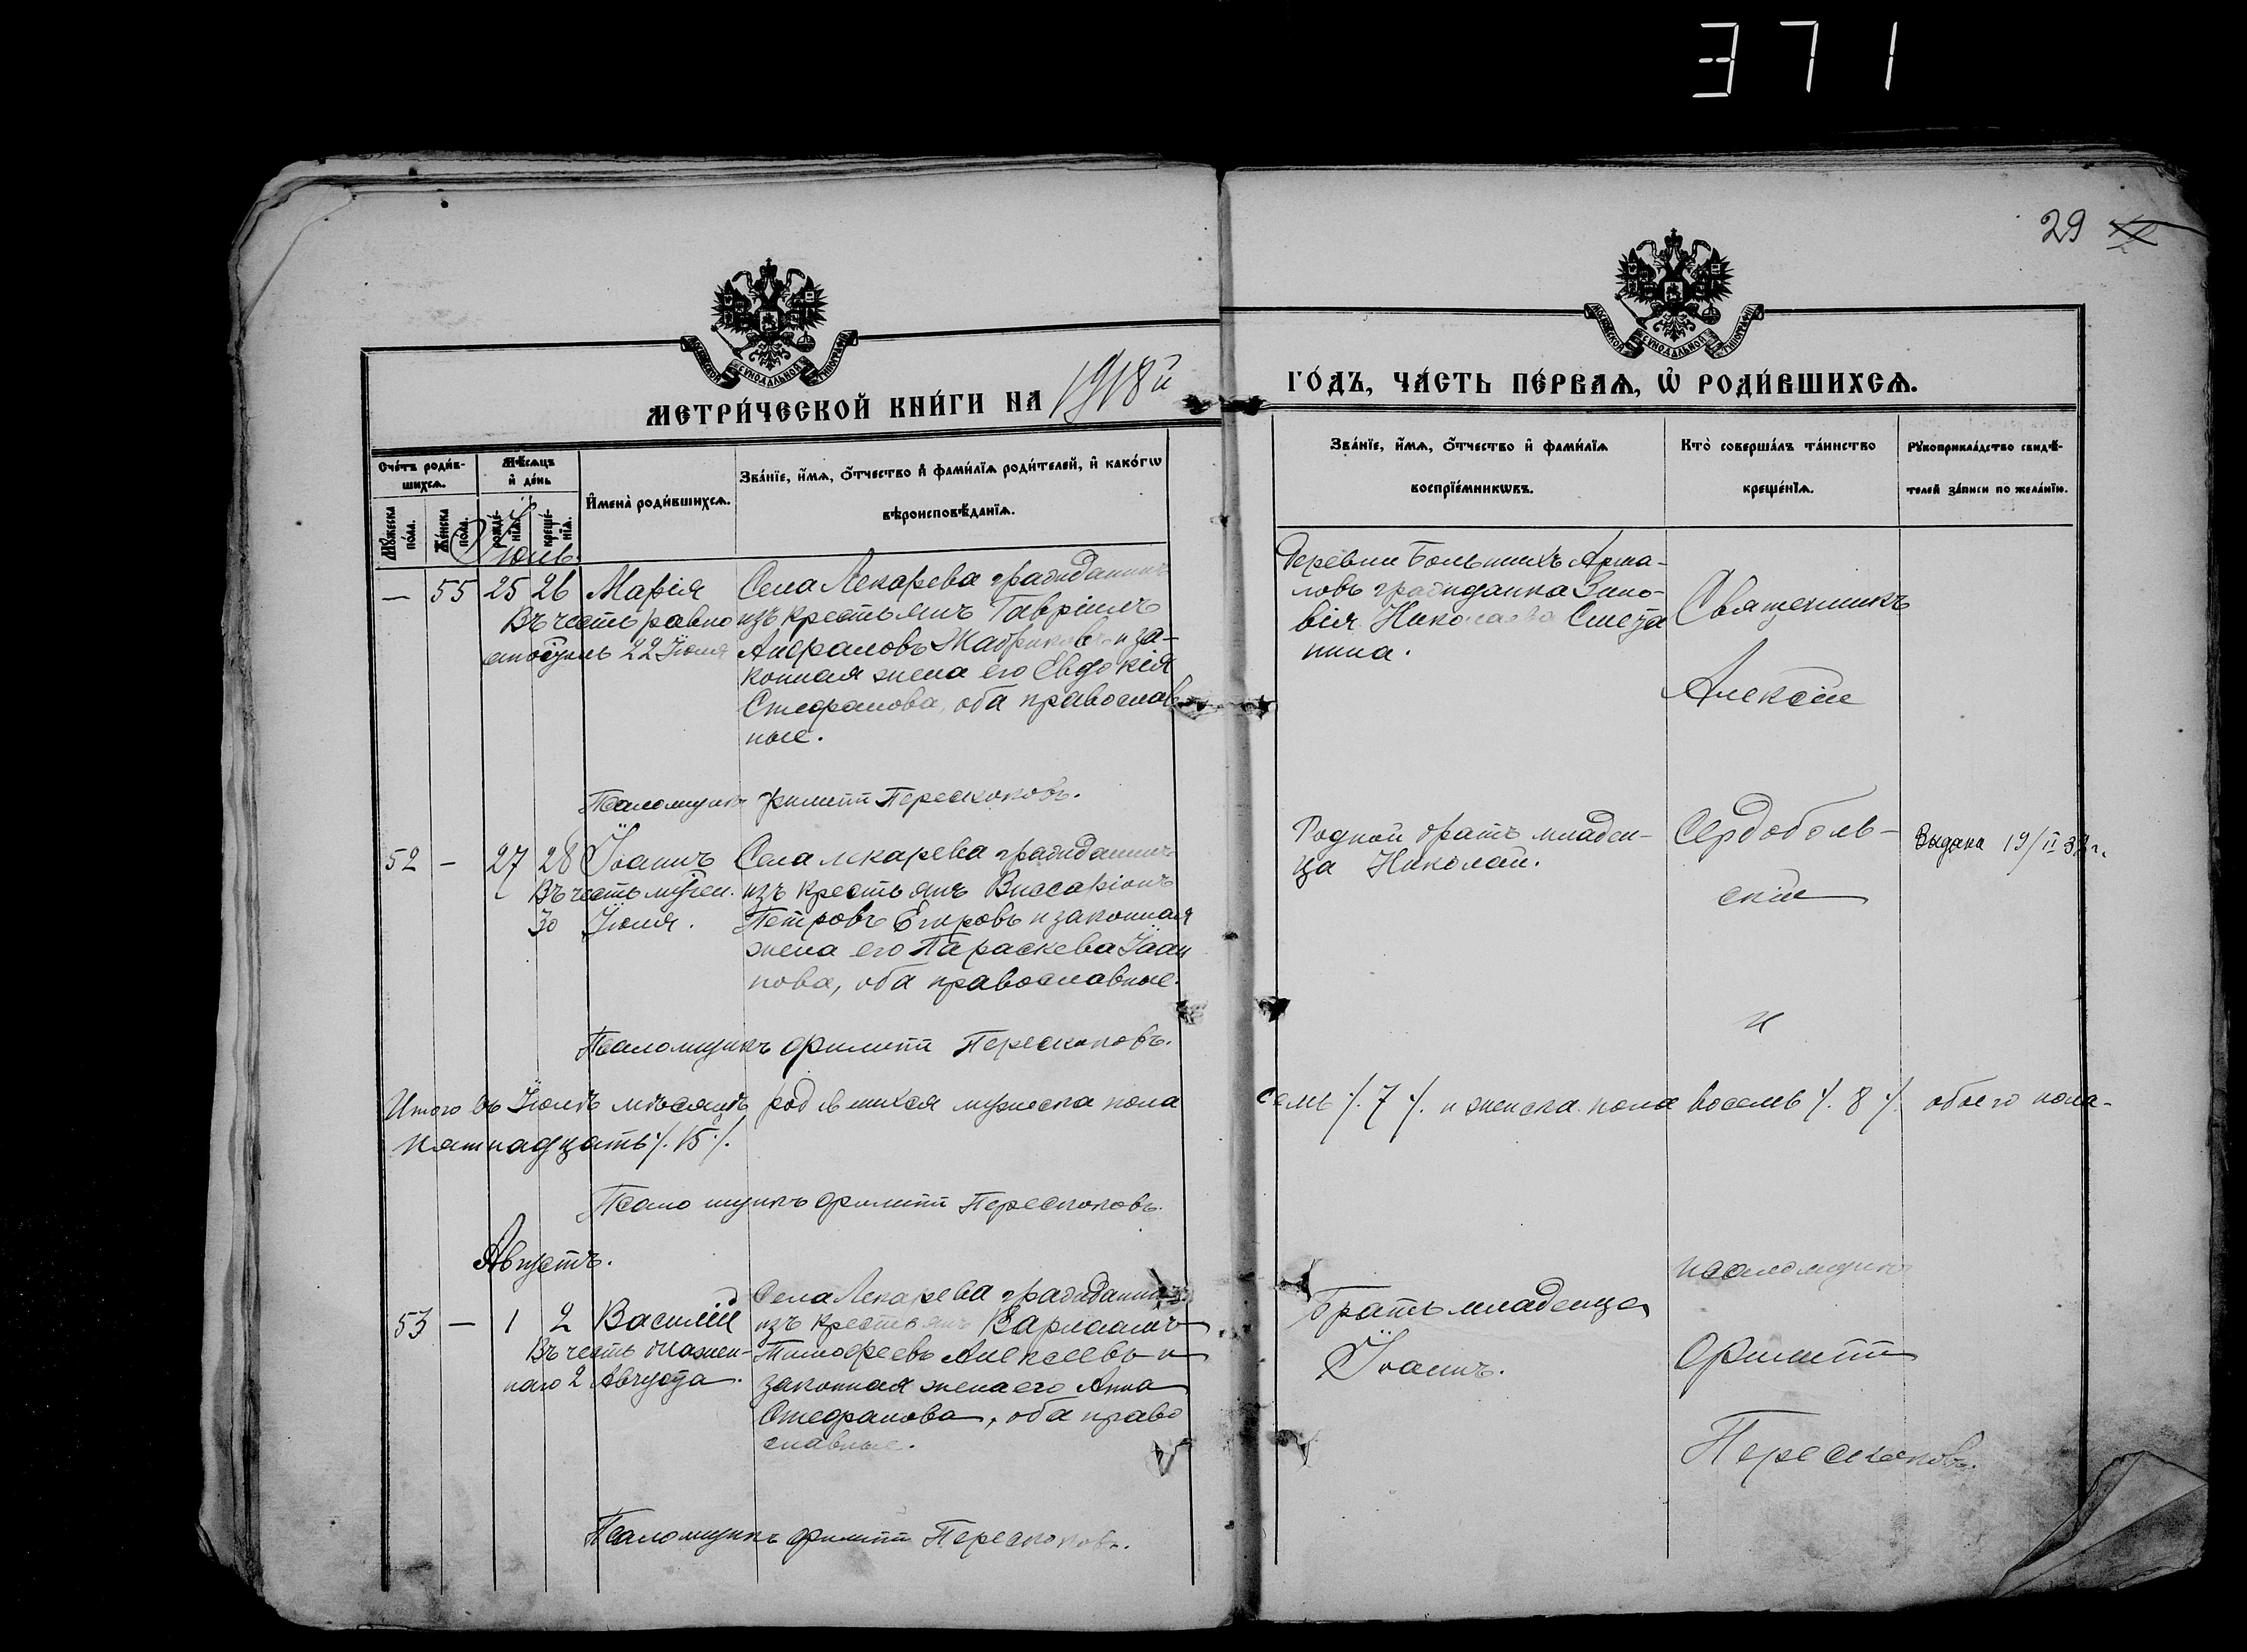 371
29
МОСКОВСКОЙ СУНОДАЛЬНОЙ ТИПОГРАФІИ
МОСКОВСКОЙ СУНОДАЛЬНОЙ ТИПОГРАФІИ
МЕТРИ́ЧЕСКОЙ КНИ́ГИ НА 1918й
ГО́ДЪ, ЧА́СТЬ ПЕ́РВАѦ, Ѡ҆ РОДИ́ВШИХСѦ.
Сче́тъ роди́в-
шихсѧ.
Мꙋ́жеска по́ла.
Же́нска по́ла.
Мѣ́сѧцъ
и҆ де́нь
рожде́-
нїѧ.
креще́-
нїѧ.
И҆мена̀ роди́вшихсѧ.
Зва́нїе, и҆́мѧ, ѻ҆́тчество и҆ фами́лїѧ роди́телей, и҆ како́гѡ
вѣроисповѣ́данїѧ.
Зва́нїе, и҆́мѧ, ѻ҆́тчество и҆ фами́лїѧ
воспрїе́мникѡвъ.
Кто̀ соверша́лъ та́инство
креще́нїѧ.
Рꙋкоприкла́дство свидѣ́-
телей за́писи по жела́нїю.
Іюль.
— 55 25 26 Марія
Въ честь равно
апостоль 22 Іюля
Села Лекарева гражданинъ
изъ крестьянъ Гавріилъ
и за-
конная жена его Евдокія
Стефанова, оба православ
ные.
Деревни Большихъ Арма-
ловъ гражданка Зино-
вія Николаева
нина.
Священникъ
Алексій
Псаломщикъ Филиппъ Перескоковъ.
52 — 27 28 Іоаннъ
Въ честь мучен.
30 Іюля.
Села Лекарева гражданинъ
изъ крестьянъ Виссаріонъ
Петровъ Егоровъ и законная
жена его Параскева Іоан
нова, оба православные.
Родной братъ младен-
ца Николай.
Сердоболь-
скій
Выдана 19/II
Псаломщикъ Филиппъ Перескоковъ.
и
Итого въ Іюлѣ мѣсяцѣ родившихся мужеска пола семь /. 7 /. и женска пола восемь /. 8 /. обоего пола-
пятнадцать /. 15 /.
Псаломщикъ Филиппъ Перескоковъ.
Августъ.
53 — 1 2 Василій
Въ честь блажен-
наго 2 Августа.
Села Лекарева гражданинъ
изъ крестьянъ Варлаамъ
Тимофеевъ Алексеевъ и
законная жена его Анна
Стефанова, оба право
славные.
Братъ младенца
Іоаннъ.
псаломщикъ
Филиппъ
Перескоковъ.
Псаломщикъ Филиппъ Перескоковъ.